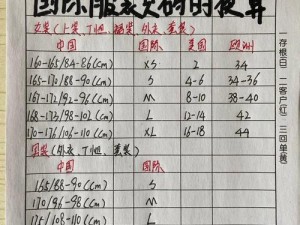 国际服装尺码的换算
女装(上装、T恤、裙装、外衣、套装)
中国 国际 美国 欧洲
160-165/84-86(cm) XS 2 34
165-170/88-90(cm) S 4-6 34-36
167-172/92-96(cm) M 8-10 38-40
168-173/98-102(cm) L 12-14 42
170-176/106-110(cm) XL 16-18 44
男装(外衣、T恤、套装)
中国 国际
165/88-90(cm) S
170/96-98(cm) M
175/108-110(cm) L
一存根(白) 二客户(红) 三回单(黄)